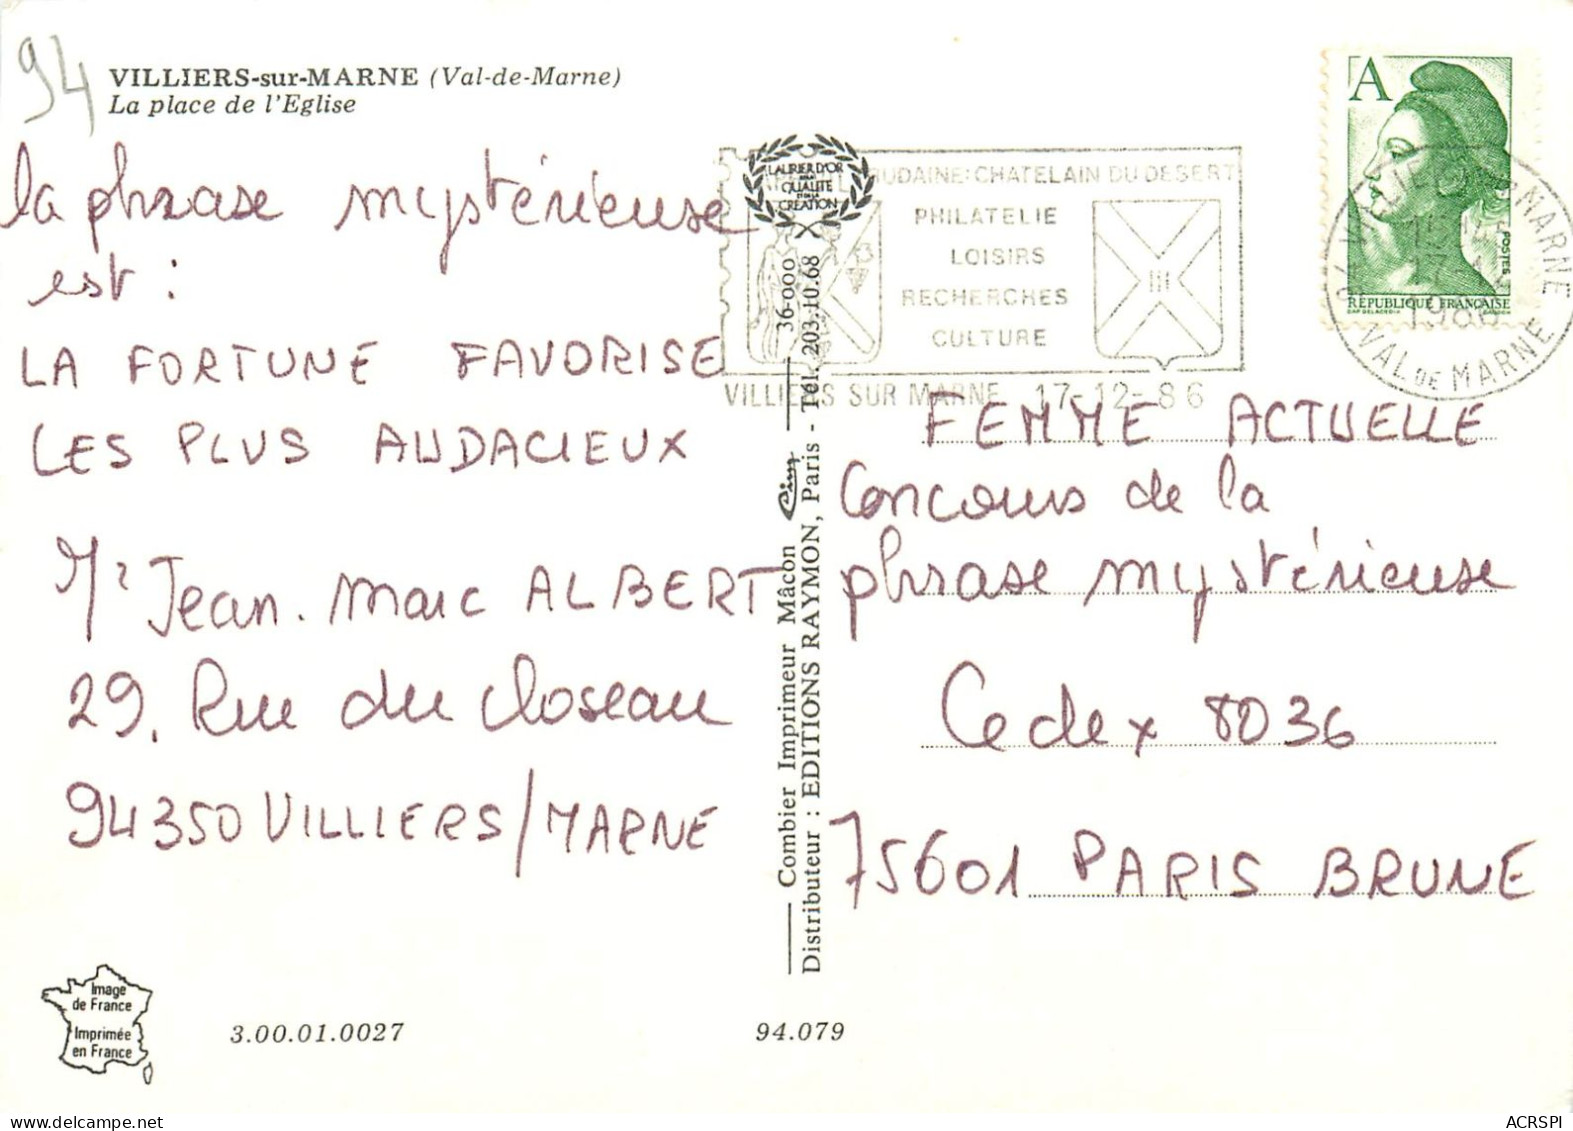 94
VILLIERS-sur-MARNE (Val-de-Marne)
La place de l'Eglise
la phrase mystérieuse
est :
LA FORTUNE FAVORISE
LES PLUS AUDACIEUX
Mr Jean-Marc ALBERT
29, Rue du Closeau
94350 VILLIERS/MARNE
Image
de France
Imprimée
en France
3.00.01.0027
94.079
Combier Imprimeur Mâcon Cim 36-000
Distributeur : EDITIONS RAYMON, Paris - Tél. 203.10.68
LAURIER D'OR
QUALITÉ
CRÉATION
CHATELAIN DU DESERT
PHILATELIE
LOISIRS
RECHERCHES
CULTURE
III
VILLIERS SUR MARNE 17-12-86
A
POSTES
REPUBLIQUE FRANÇAISE
MARNE
1986
VAL DE MARNE
FEMME ACTUELLE
Concours de la
phrase mystérieuse
Cedex 8036
75601 PARIS BRUNE
ACRSPI